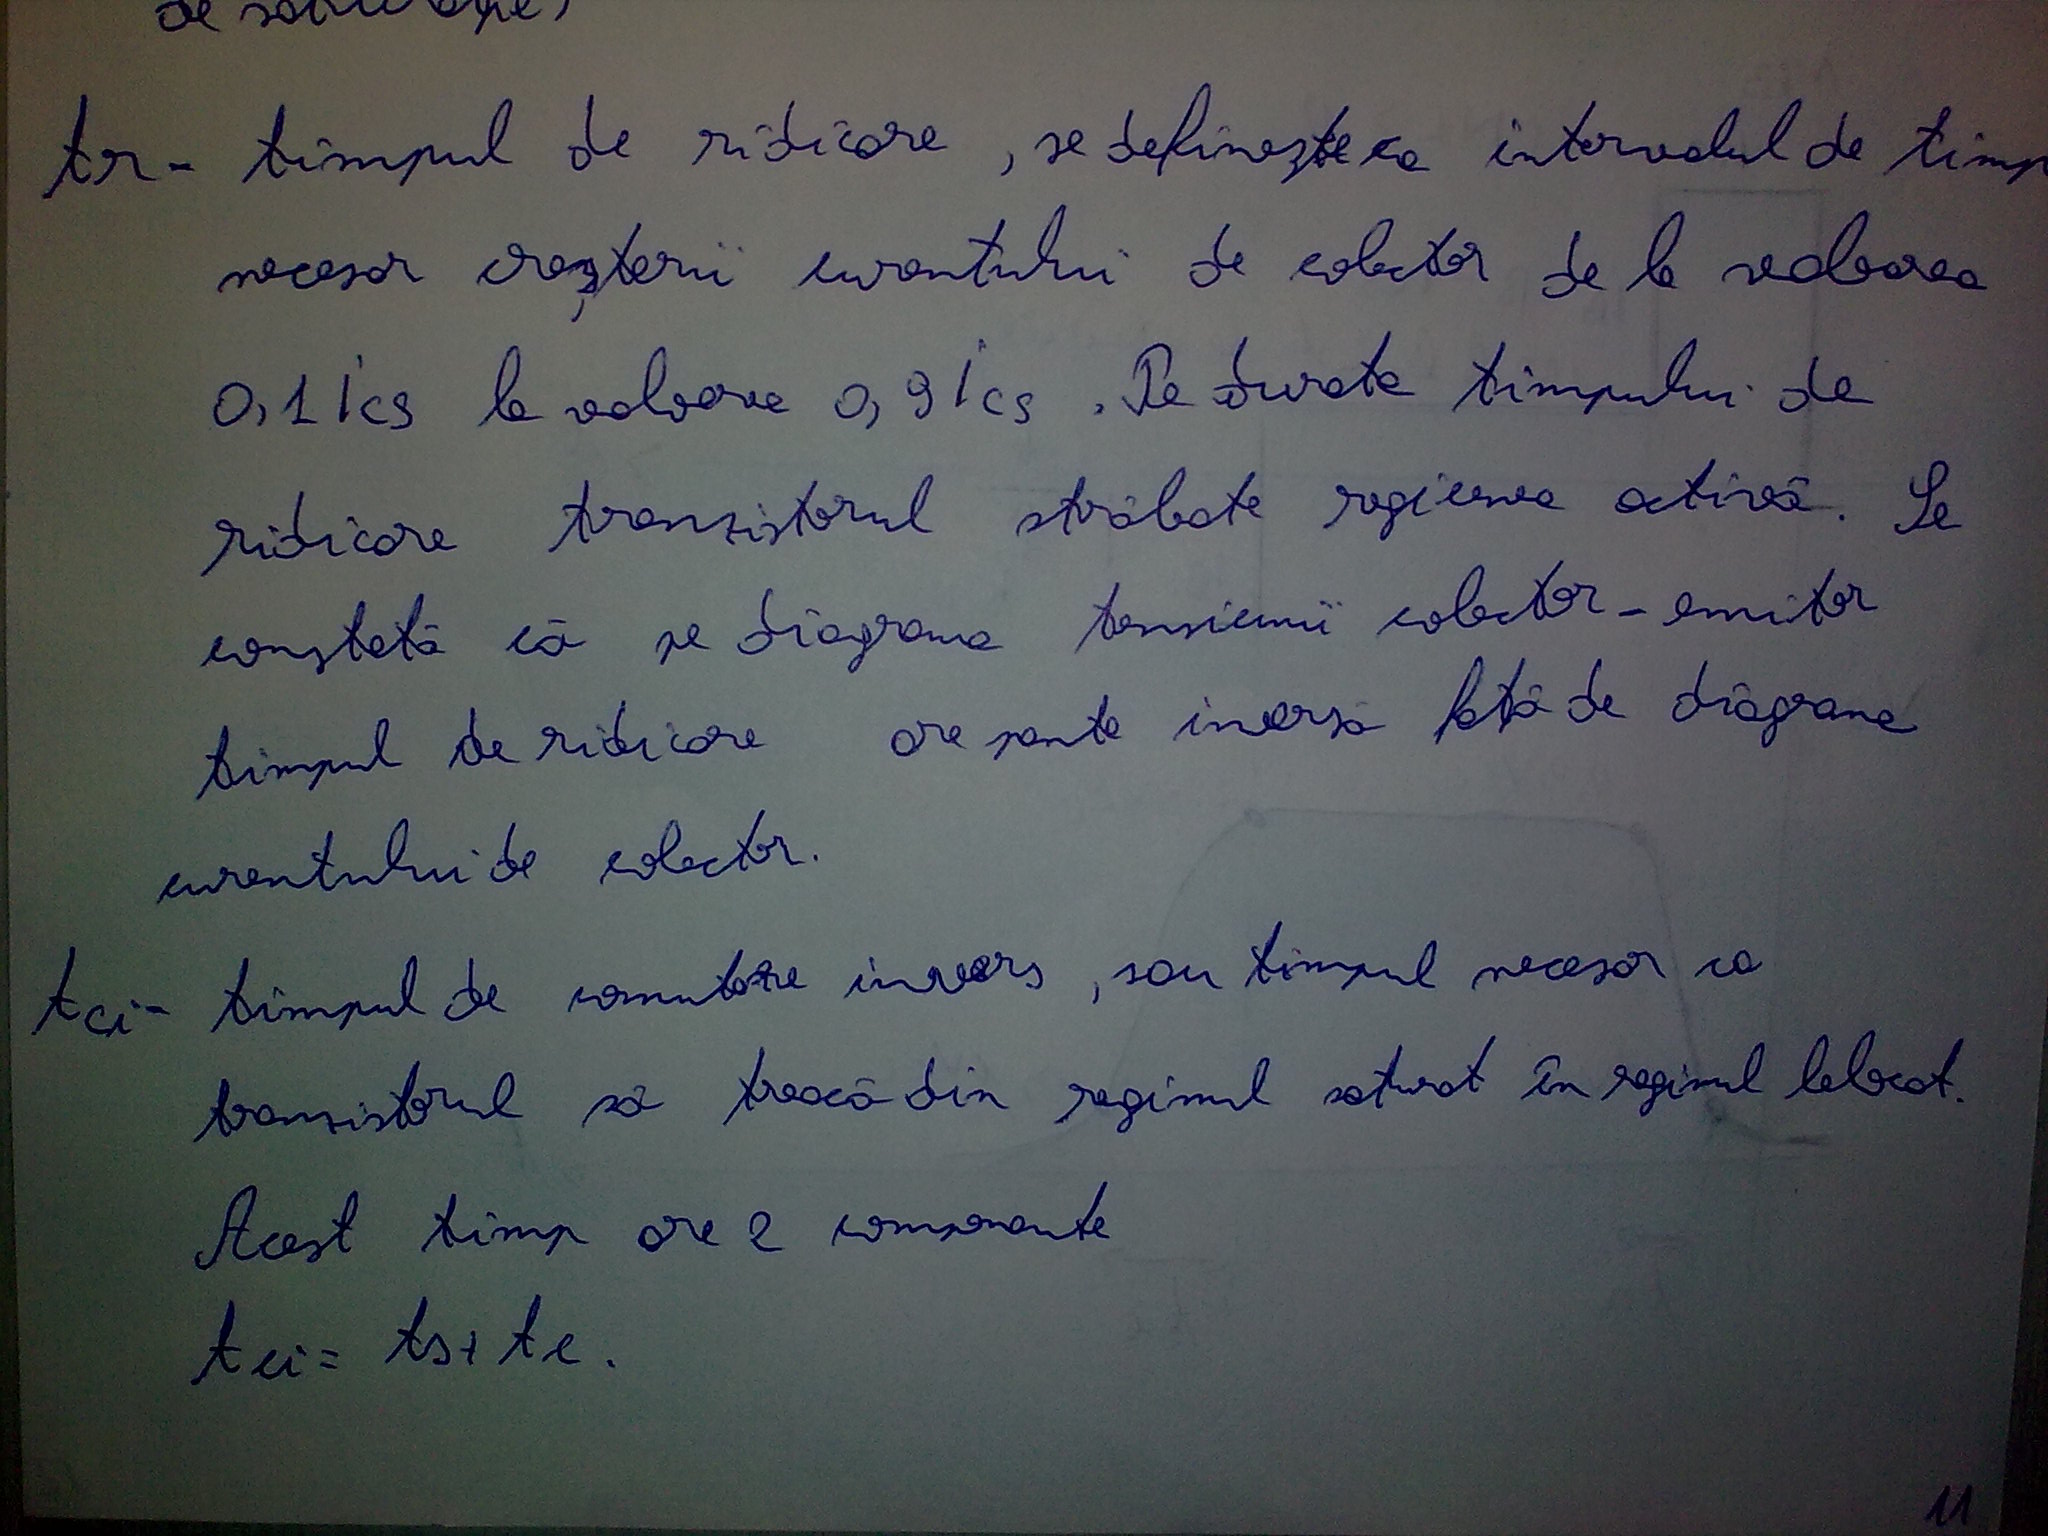 de saturație)
tr - timpul de ridicare, se definește ca intervalul de timp
necesar creșterii curentului de colector de la valoarea
0,1 ics la valoare 0,9 ics. Pe durata timpului de
ridicare tranzistorul străbate regiunea activă. Se
constată că pe diagrama tensiunii colector - emitor
timpul de ridicare are panta inversă fată de diagrama
curentului de colector.
tci - timpul de comutare invers, sau timpul necesar ca
tranzistorul să treacă din regimul saturat în regimul blocat.
Acest timp are 2 componente
tci = ts + tc.
11